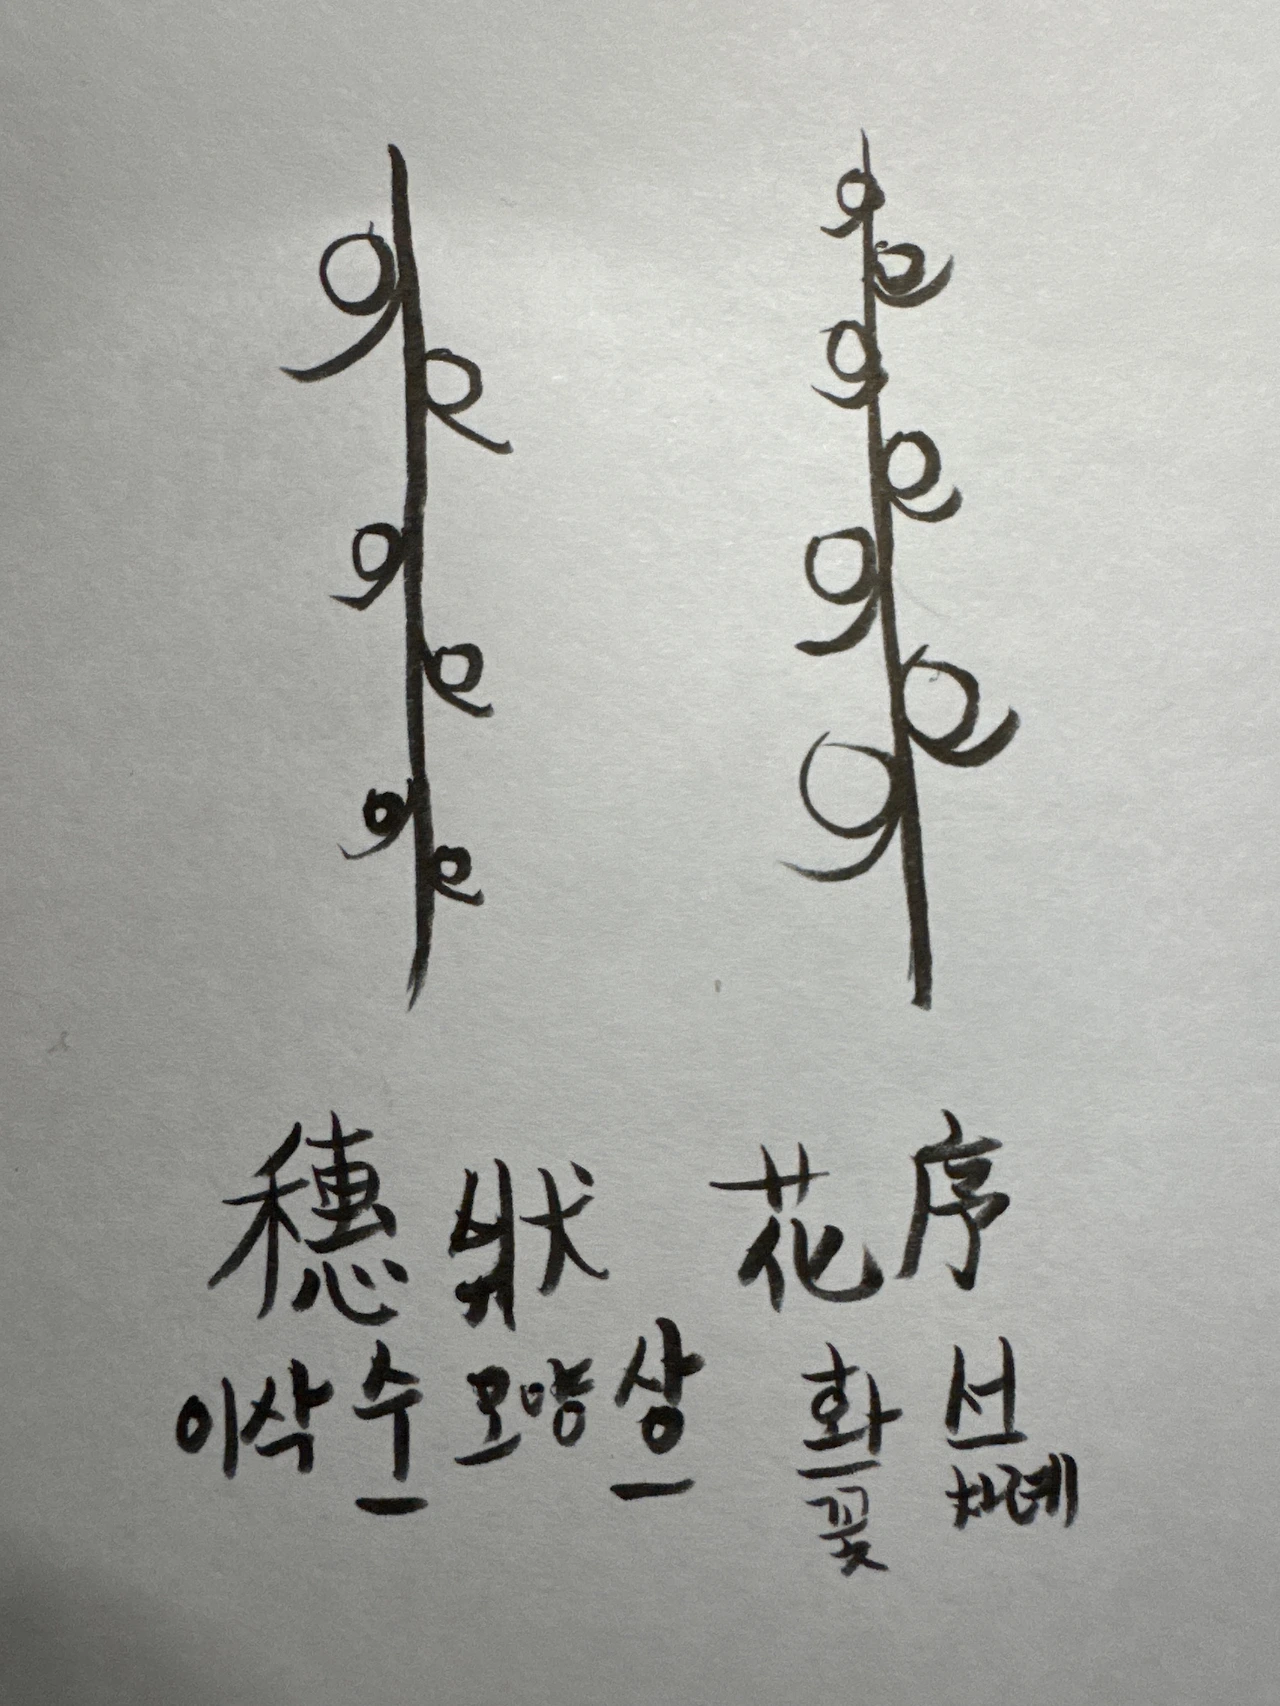 穗狀 花序
이삭수 모양상 화 서
꽃 차례